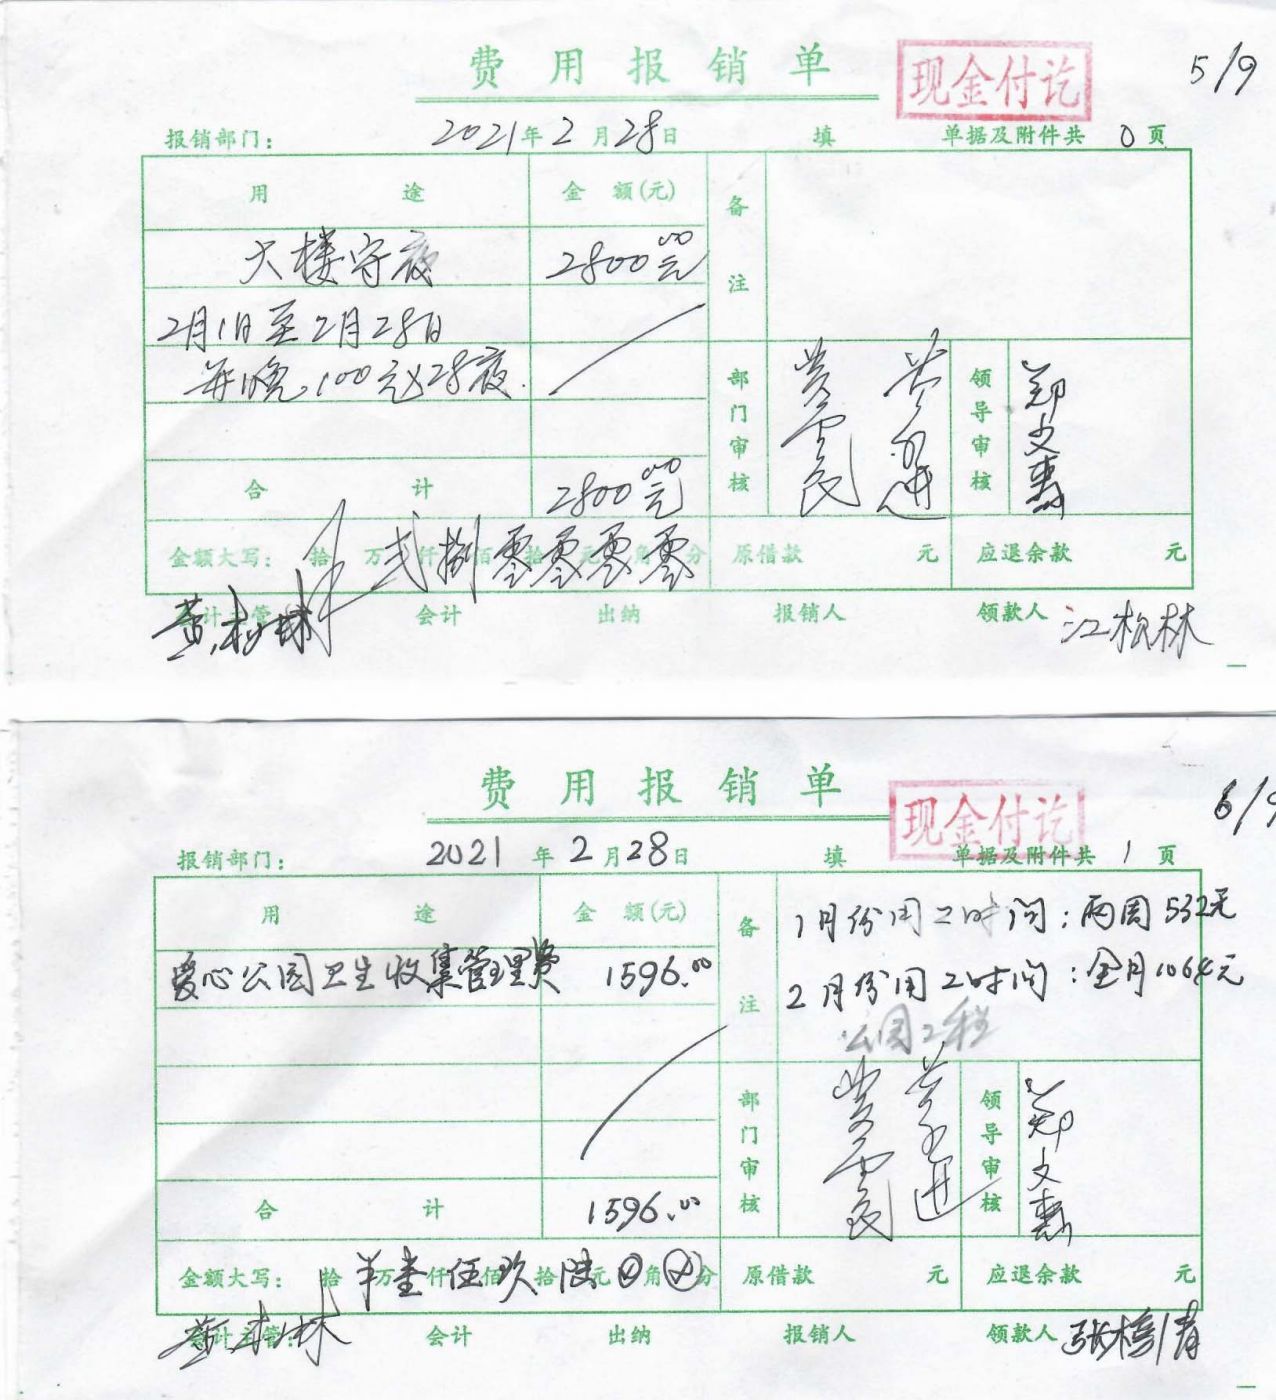 费用报销单
现金付讫
5/9
报销部门: 2021年2月28日 填 单据及附件共 0 页
用途 金额(元) 备注
大楼守夜 2800.00元
2月1日至2月28日
每晚100元×28夜.
部门审核 领导审核
合计 2800.00元
金额大写: 拾 万 贰 仟 捌 佰 零 拾 零 元 零 角 零 分 原借款 元 应退余款 元
会计主管: 会计 出纳 报销人 领款人 江松林
费用报销单
现金付讫
6/9
报销部门: 2021年2月28日 填 单据及附件共 1 页
用途 金额(元) 备注
1月份用工时间:两周532元
爱心公园卫生收集管理费 1596.00
2月份用工时间:全月1064元
公园工程
部门审核 领导审核
合计 1596.00
金额大写: 拾 万 壹 仟 伍 佰 玖 拾 陆 元 角 分 原借款 元 应退余款 元
会计主管: 会计 出纳 报销人 领款人